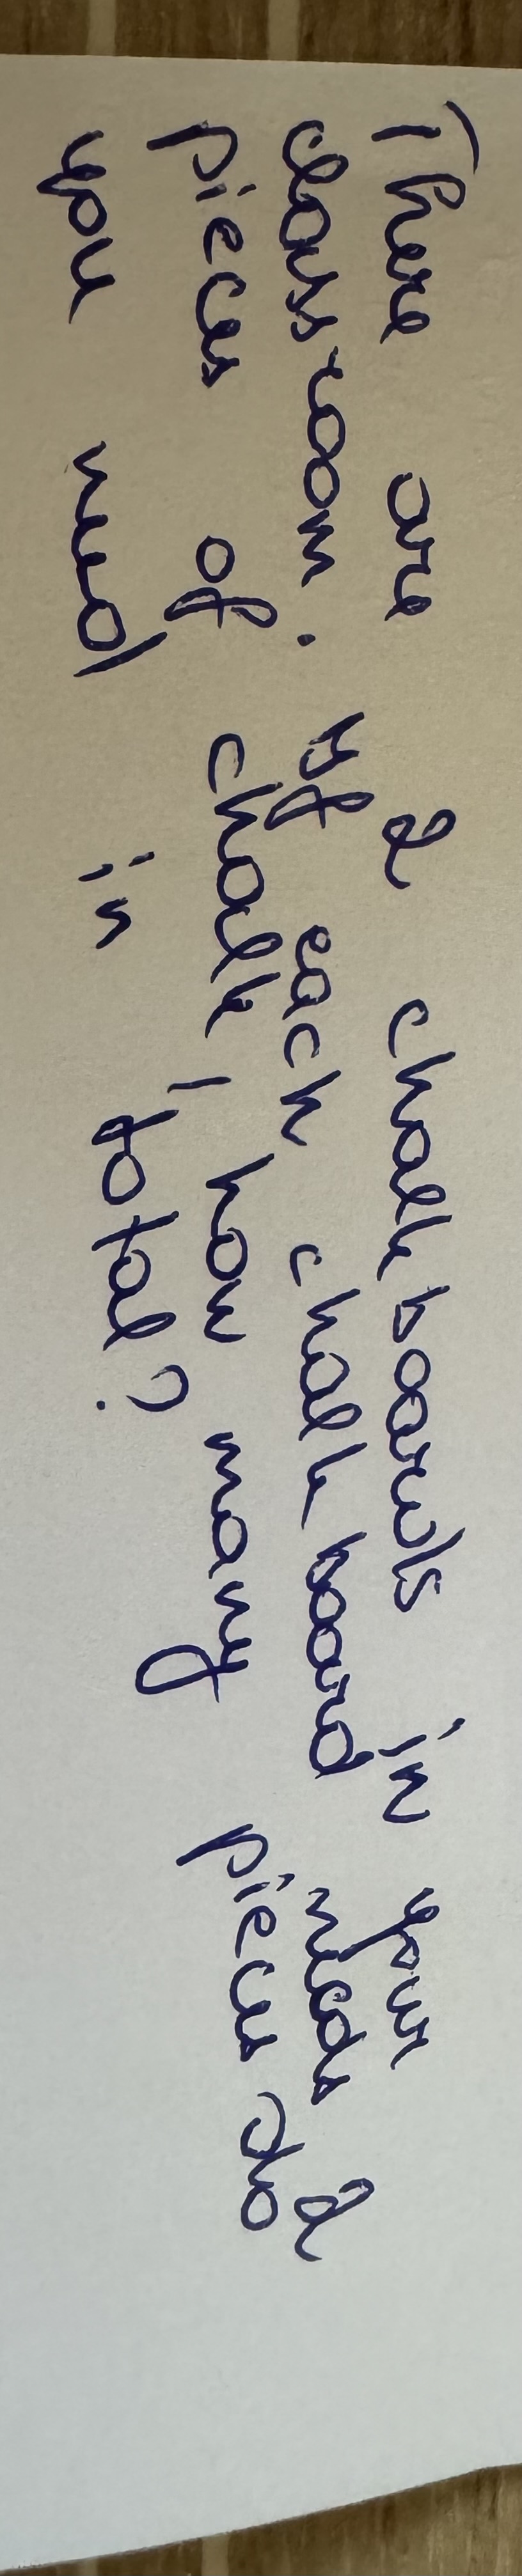 There are 2 chalkboards in your
classroom. If each chalkboard needs 2
pieces of chalk, how many pieces do
you need in total?